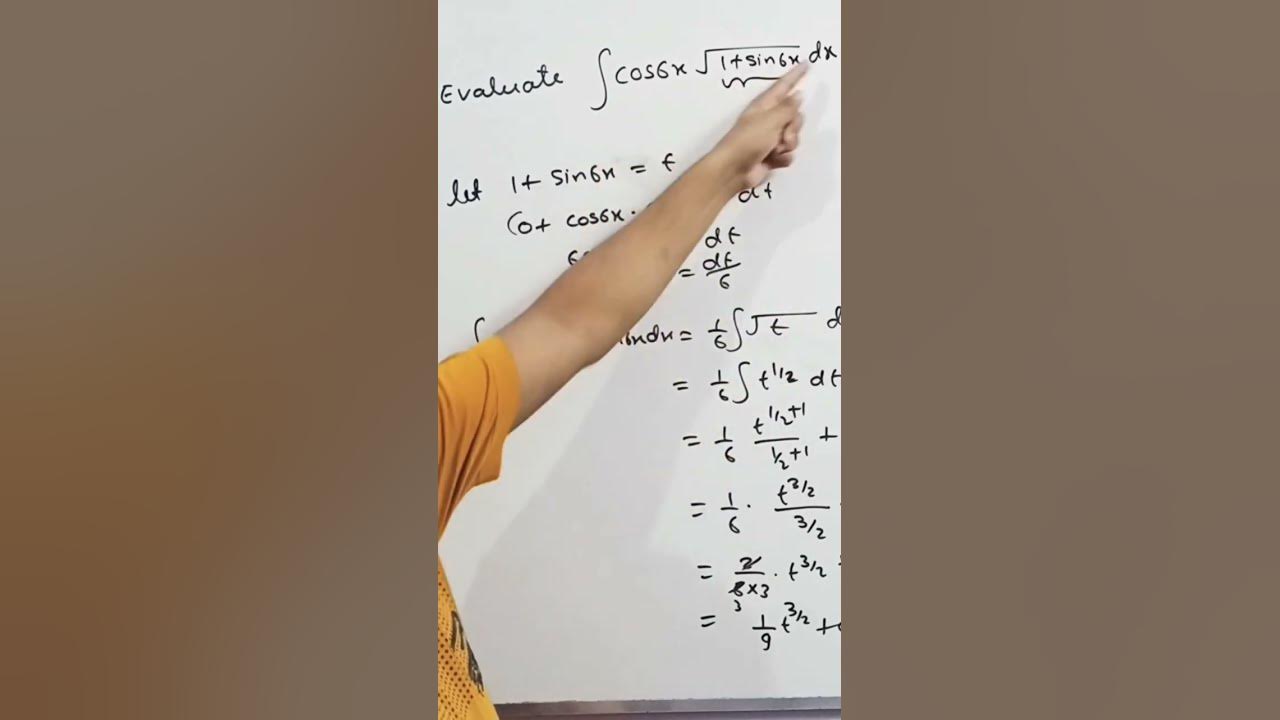 Evaluate ∫cos6x √1+sin6x dx
let 1+ sin6x = t
(0+ cos6x. dt
dt
= dt/6
∫ dx = 1/6 ∫√t
= 1/6 ∫ t^1/2 dt
= 1/6 t^1/2+1/1/2+1 +
= 1/6 . t^3/2/3/2
= 2/6×3 . t^3/2
3
= 1/9 t^3/2 +